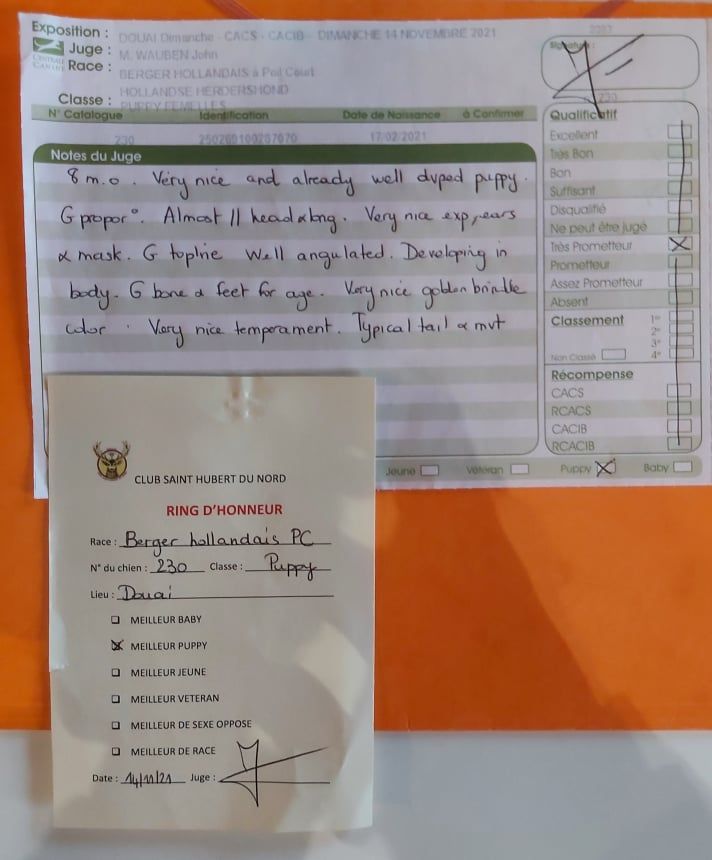 Exposition : DOUAI Dimanche - CACS - CACIB - DIMANCHE 14 NOVEMBRE 2021
Juge : M. WAUBEN John
CENTRALE CANINE
Race : BERGER HOLLANDAIS à Poil Court
HOLLANDSE HERDERSHOND
Classe : PUPPY FEMELLES
Signature :
230
N° Catalogue Identification Date de Naissance à Confirmer
230 17/02/2021
Notes du Juge
8 m.o. Very nice and already well dvped puppy.
G propor°. Almost // head & long. Very nice exp, ears
& mask. G topline well angulated. Developing in
body. G bone & feet for age. Very nice golden brindle
color. Very nice temperament. Typical tail & mvt
Qualificatif
Excellent
Très Bon
Bon
Suffisant
Disqualifié
Ne peut être jugé
Très Prometteur
Prometteur
Assez Prometteur
Absent
Classement 1er
2e
3e
Non Classé 4e
Récompense
CACS
RCACS
CACIB
RCACIB
Jeune Vétéran Puppy Baby
CLUB SAINT HUBERT DU NORD
RING D'HONNEUR
Race : Berger hollandais PC
N° du chien : 230 Classe : Puppy
Lieu : Douai
MEILLEUR BABY
MEILLEUR PUPPY
MEILLEUR JEUNE
MEILLEUR VETERAN
MEILLEUR DE SEXE OPPOSE
MEILLEUR DE RACE
Date : 14/11/21 Juge :